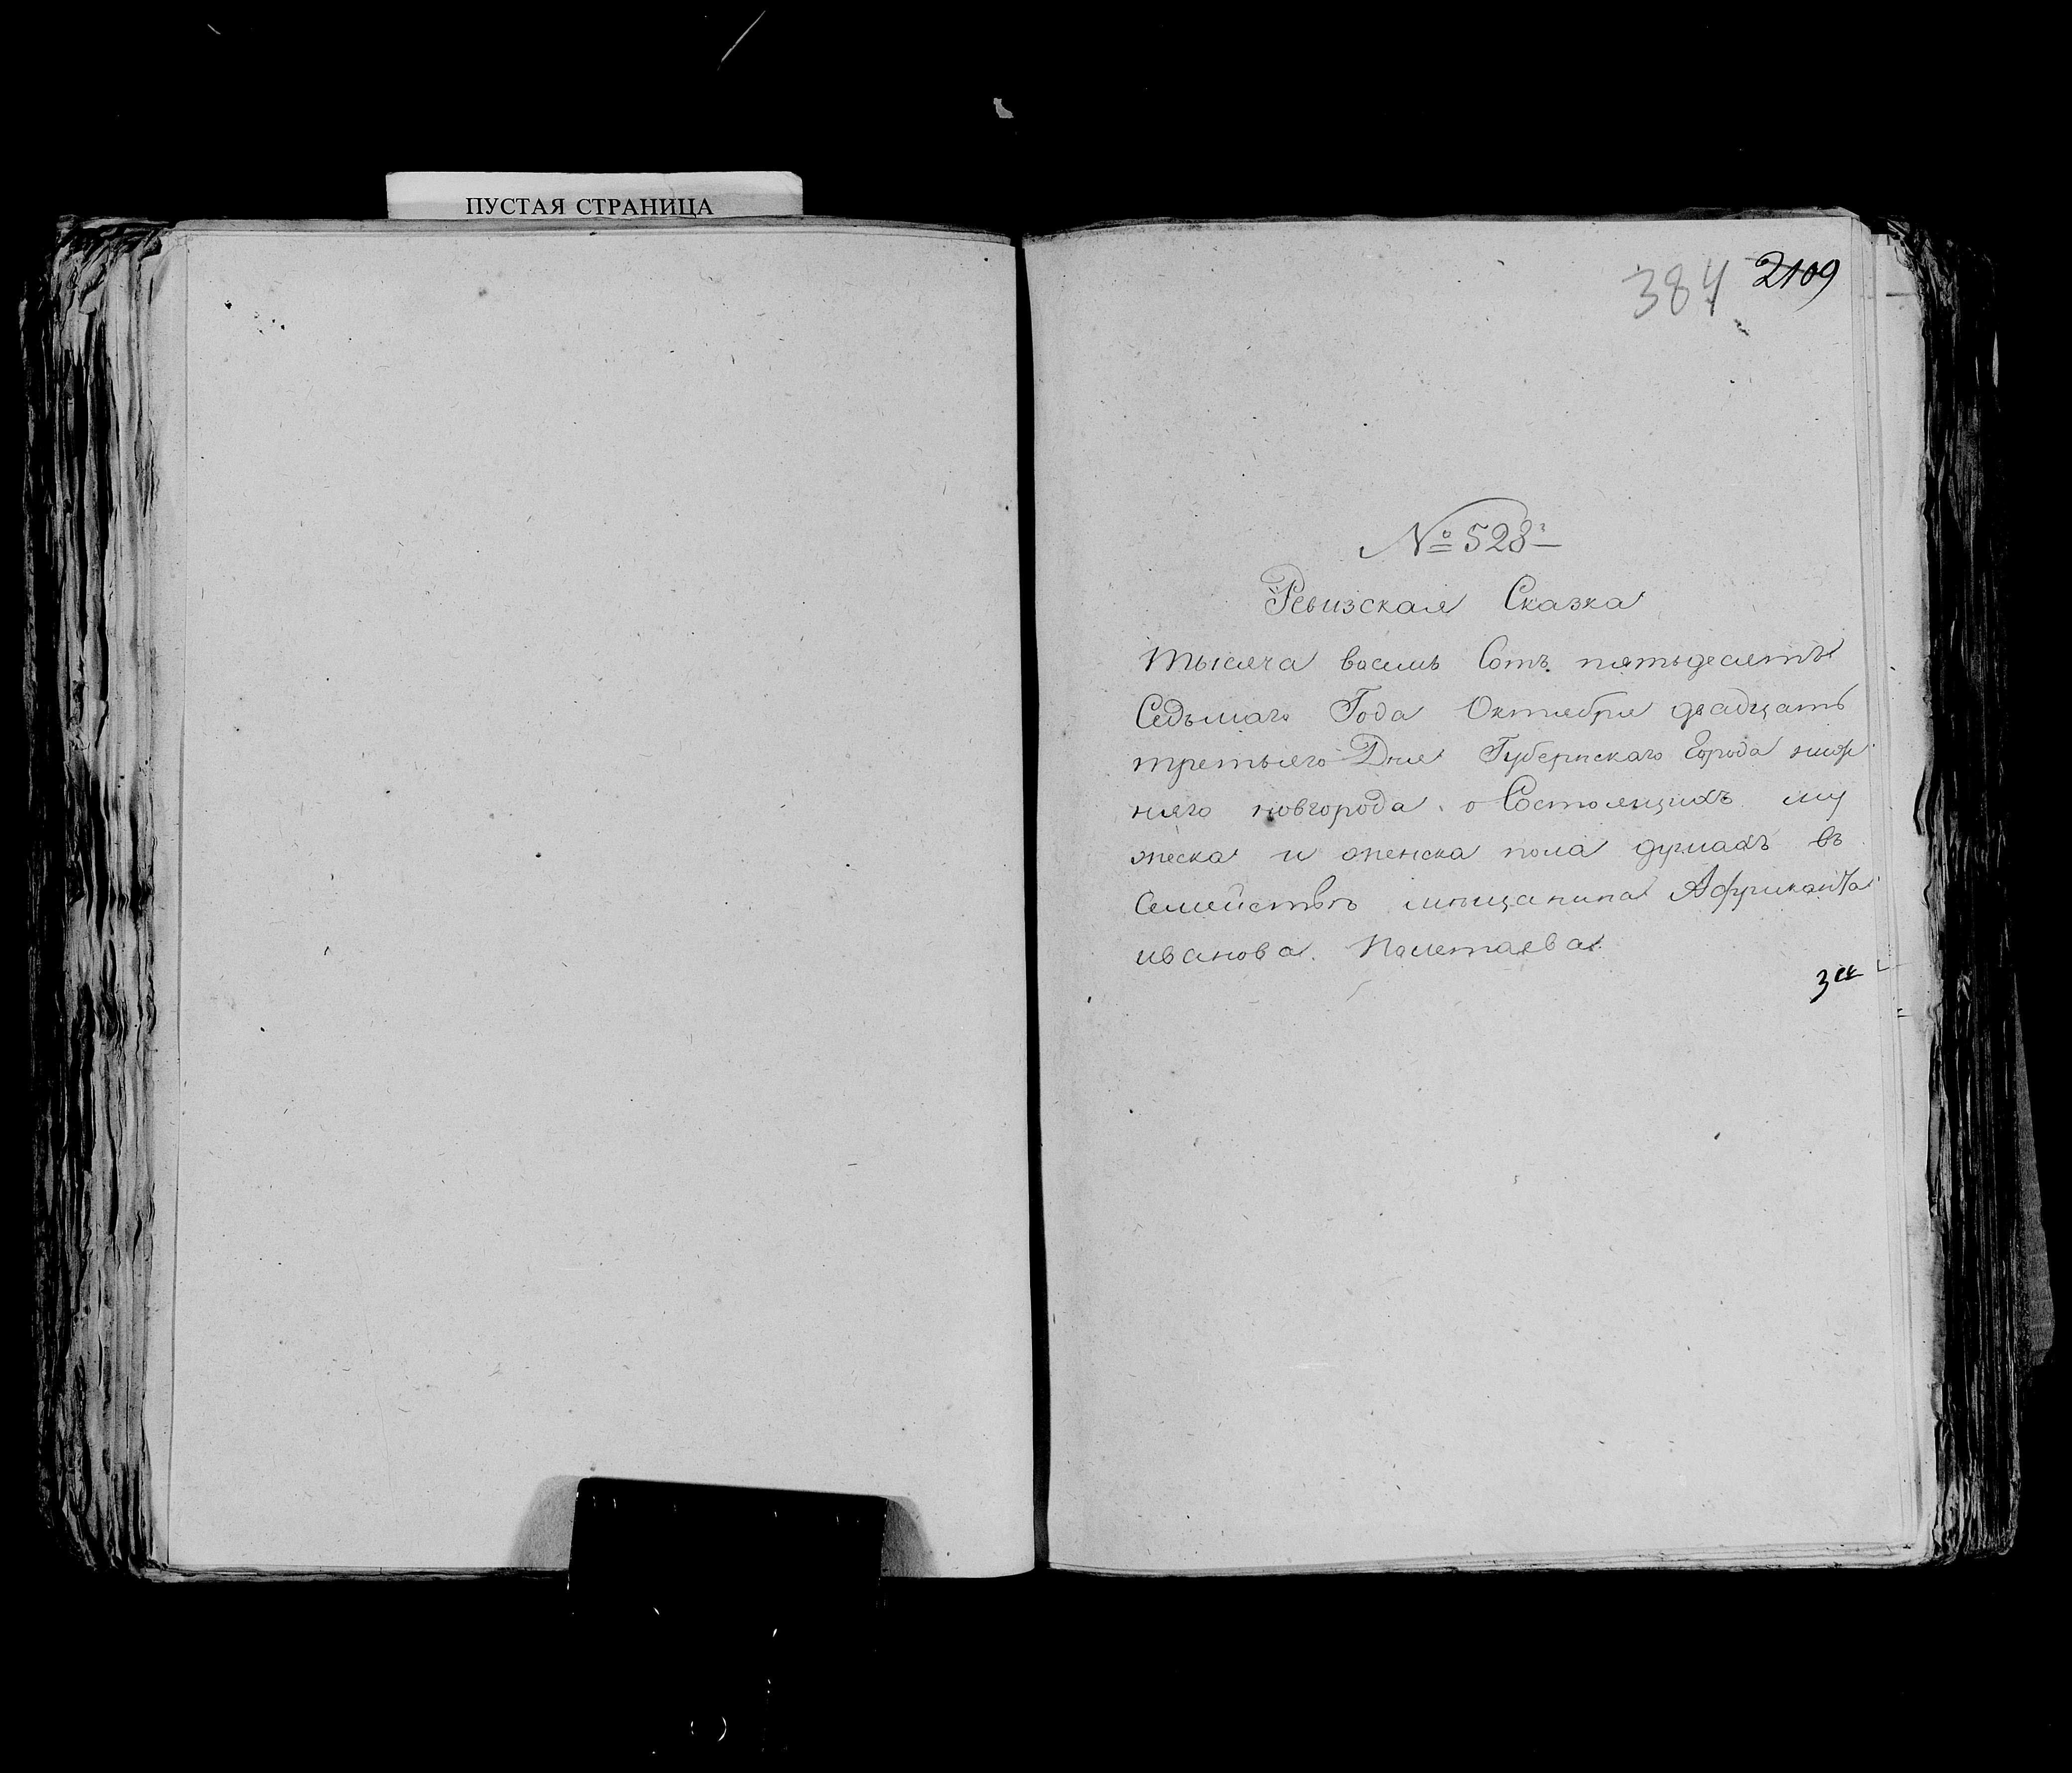 ПУСТАЯ СТРАНИЦА
384 2109
№ 528
Ревизская Сказка
тысяча восемь Сотъ пятьдесятъ
Седьмаго Года Октября двадцать
третьяго Дня Губернскаго Города ниж
няго новгорода о Состоящихъ му
жеска и женска пола душахъ въ
Семействѣ мѣщанина Африканта
иванова Полетаева